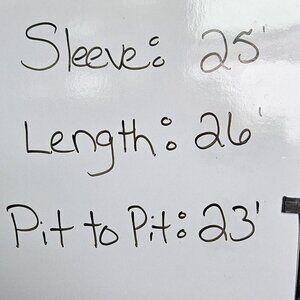 Sleeve: 25'
Length: 26'
Pit to Pit: 23'